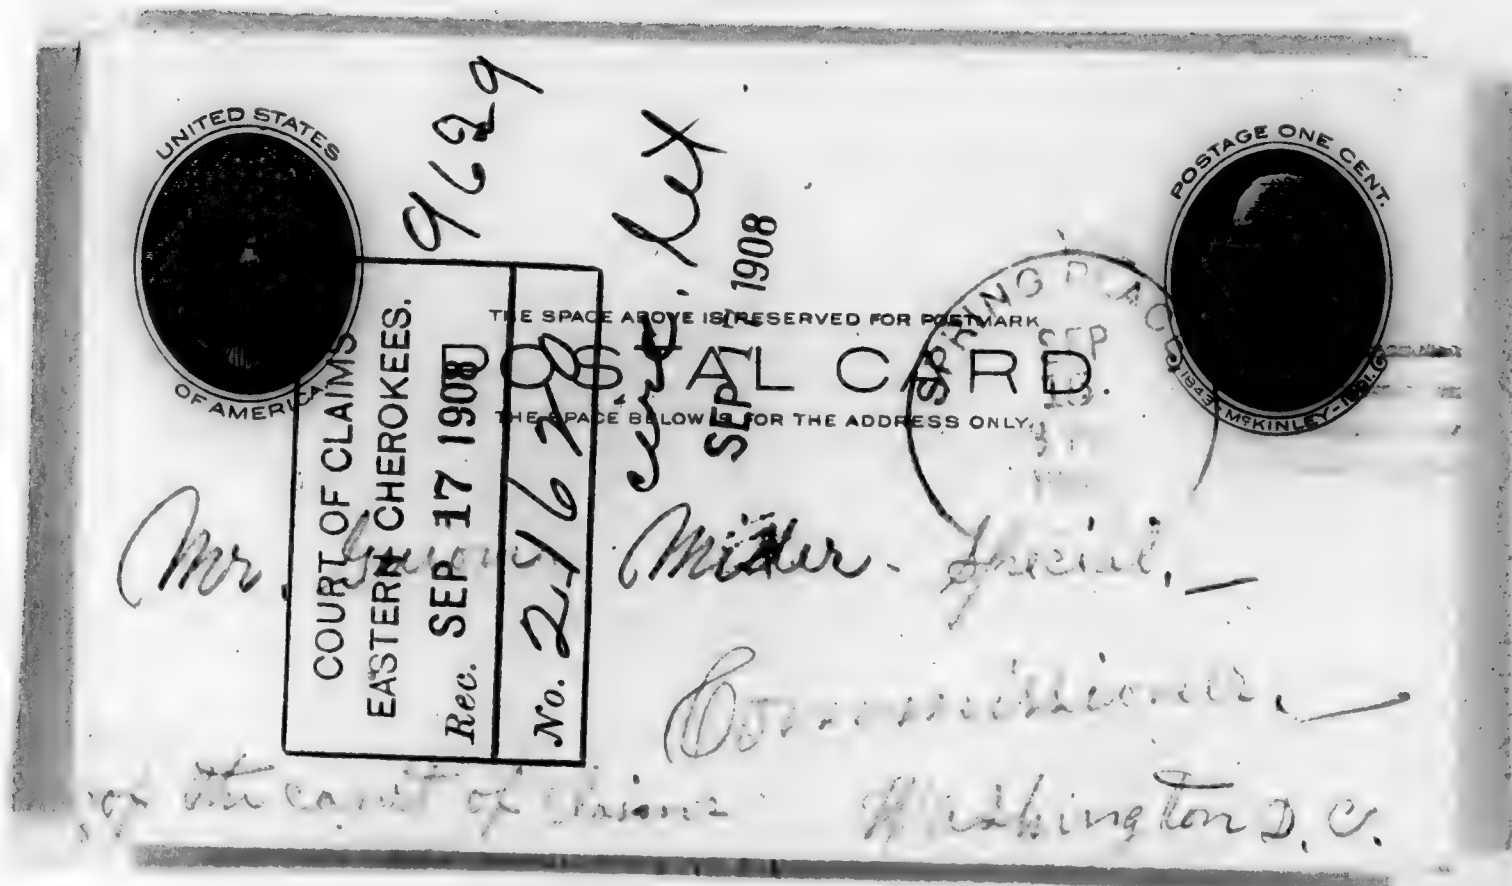 UNITED STATES
OF AMERICA
POSTAGE ONE CENT.
1843 McKINLEY-1901.
9629
SEP 17 1908
SPRING PLACE
SEP
THE SPACE ABOVE IS RESERVED FOR POSTMARK
POSTAL CARD.
THE SPACE BELOW IS FOR THE ADDRESS ONLY.
COURT OF CLAIMS
EASTERN CHEROKEES.
Rec. SEP 17 1908
No. 24628
Mr. Guion Miller - Special.
Commissioner.
of the court of Claims Washington D.C.